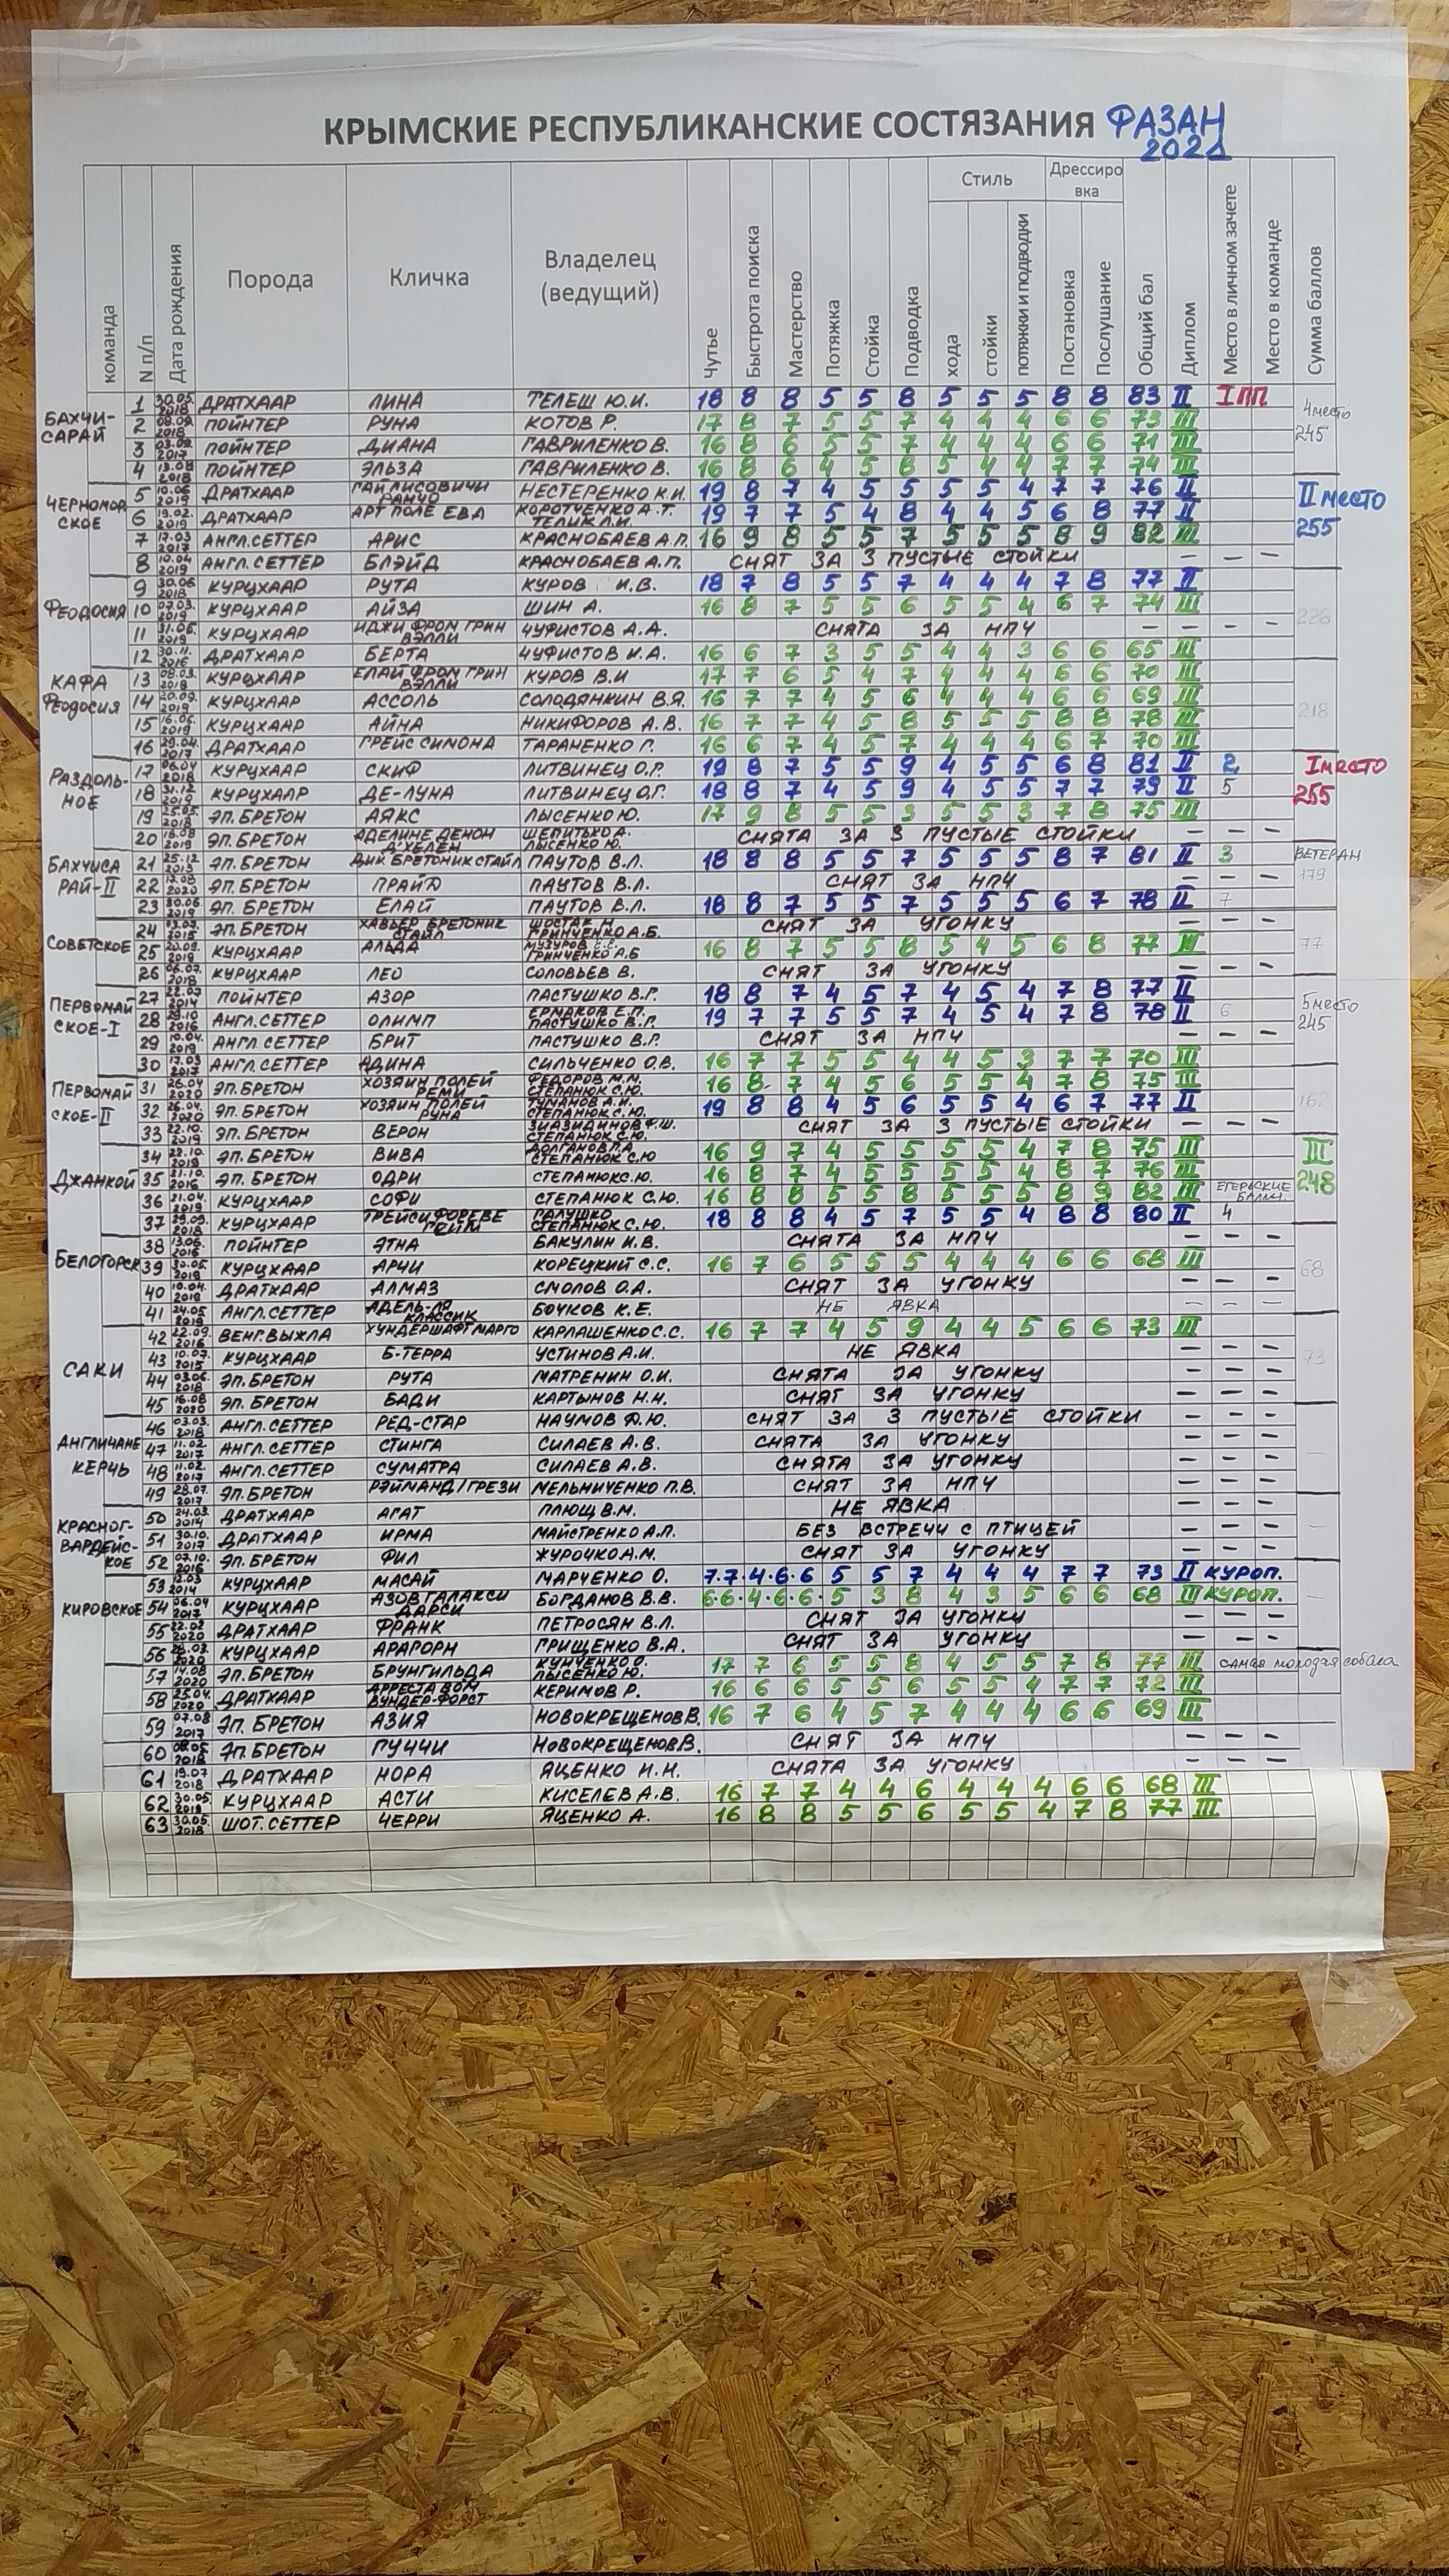 КРЫМСКИЕ РЕСПУБЛИКАНСКИЕ СОСТЯЗАНИЯ ФАЗАН
2021
команда N п/п Дата рождения Порода Кличка Владелец (ведущий) Чутье Быстрота поиска Мастерство Потяжка Стойка Подводка Стиль хода стойки потяжки и подводки Дрессировка Постановка Послушание Общий бал Диплом Место в личном зачете Место в команде Сумма баллов
БАХЧИ-САРАЙ 4 место 245
1 30.05. 2018 ДРАТХААР ЛИНА ТЕЛЕШ Ю.И. 18 8 8 5 5 8 5 5 5 8 8 83 II I ПП
2 08.09. 2018 ПОЙНТЕР РУНА КОТОВ Р. 17 8 7 5 5 7 4 4 4 6 6 73 III
3 03.09. 2017 ПОЙНТЕР ДИАНА ГАВРИЛЕНКО В. 16 8 6 5 5 7 4 4 4 6 6 71 III
4 13.08 2018 ПОЙНТЕР ЭЛЬЗА ГАВРИЛЕНКО В. 16 8 6 4 5 8 5 4 4 7 7 74 III
ЧЕРНОМОРСКОЕ II МЕСТО 255
5 10.06 2019 ДРАТХААР ГАЙЛИСОВИЧИ РАНЧО НЕСТЕРЕНКО К.И. 19 8 7 4 5 5 5 5 4 7 7 76 II
6 19.02. 2019 ДРАТХААР АРТ ПОЛЕ ЕВА КОРОТЧЕНКО А.Т. ТЕЛИК Л.И. 19 7 7 5 4 8 4 4 5 6 8 77 II
7 17.03 2017 АНГЛ.СЕТТЕР АРИС КРАСНОБАЕВ А.П. 16 9 8 5 5 7 5 5 5 8 9 82 III
8 10.04 2019 АНГЛ.СЕТТЕР БЛЭЙД КРАСНОБАЕВ А.П. СНЯТ ЗА 3 ПУСТЫЕ СТОЙКИ — — —
ФЕОДОСИЯ 226
9 30.06 2018 КУРЦХААР РУТА КУРОВ И.В. 18 7 8 5 5 7 4 4 4 7 8 77 II
10 07.03. 2019 КУРЦХААР АЙЗА ШИН А. 16 8 7 5 5 6 5 5 4 6 7 74 III
11 31.05. 2019 КУРЦХААР ИДЖИ ФРОМ ГРИН ВЭЛЛИ ЧУФИСТОВ А.А. СНЯТА ЗА НПЧ — — — —
12 30.11. 2016 ДРАТХААР БЕРТА ЧУФИСТОВ И.А. 16 6 7 3 5 5 4 4 3 6 6 65 III
КАФА ФЕОДОСИЯ 218
13 08.03. 2018 КУРЦХААР ЕЛАЙ ФРОМ ГРИН ВЭЛЛИ КУРОВ В.И 17 7 6 5 4 7 4 4 4 6 6 70 III
14 20.09. 2019 КУРЦХААР АССОЛЬ СОЛОДЯНКИН В.Я. 16 7 7 4 5 6 4 4 4 6 6 69 III
15 16.06. 2019 КУРЦХААР АЙНА НИКИФОРОВ А.В. 16 7 7 4 5 8 5 5 5 8 8 78 III
16 29.04. 2017 ДРАТХААР ГРЕЙС СИМОНА ТАРАНЕНКО Г. 16 6 7 4 5 7 4 4 4 6 7 70 III
РАЗДОЛЬНОЕ I МЕСТО 255
17 06.04 2018 КУРЦХААР СКИФ ЛИТВИНЕЦ О.Г. 19 8 7 5 5 9 4 5 5 6 8 81 II 2
18 31.12 2019 КУРЦХААР ДЕ-ЛУНА ЛИТВИНЕЦ О.Г. 18 8 7 4 5 9 4 5 5 7 7 79 II 5
19 25.05. 2018 ЭП.БРЕТОН АЯКС ЛЫСЕНКО Ю. 17 9 8 5 5 3 5 5 3 7 8 75 III
20 18.08 2019 ЭП.БРЕТОН АДЕЛИНЕ ДЕНОН Д'ХЕЛЕН ШЕПИТЬКО А. ЛЫСЕНКО Ю. СНЯТА ЗА 3 ПУСТЫЕ СТОЙКИ — — —
БАХЧИСАРАЙ-II 179
21 25.12 2013 ЭП.БРЕТОН ДИК БРЕТОНИК СТАЙЛ ПАУТОВ В.Л. 18 8 8 5 5 7 5 5 5 8 7 81 II 3 ВЕТЕРАН
22 17.08 2020 ЭП.БРЕТОН ПРАЙД ПАУТОВ В.Л. СНЯТ ЗА НПЧ — — —
23 30.06 2019 ЭП.БРЕТОН ЕЛАЙ ПАУТОВ В.Л. 18 8 7 5 5 7 5 5 5 6 7 78 II 7
СОВЕТСКОЕ 77
24 13.07. 2015 ЭП.БРЕТОН ХАВЬЕР БРЕТОНИК СТАЙЛ ШОСТАК Н ГРИНЧЕНКО А.Б. СНЯТ ЗА УГОНКУ — — —
25 20.09. 2019 КУРЦХААР АЛЬДА МУЗУРОВ Е.Е. ГРИНЧЕНКО А.Б 16 8 7 5 5 8 5 4 5 6 8 77 III
26 06.07. 2018 КУРЦХААР ЛЕО СОЛОВЬЕВ В. СНЯТ ЗА УГОНКУ — — —
ПЕРВОМАЙСКОЕ-I 5 место 245
27 22.07 2014 ПОЙНТЕР АЗОР ПАСТУШКО В.Г. 18 8 7 4 5 7 4 5 4 7 8 77 II
28 29.10 2016 АНГЛ.СЕТТЕР ОЛИМП ЕРМАКОВ Е.П. ПАСТУШКО В.Г. 19 7 7 5 5 7 4 5 4 7 8 78 II 6
29 10.04. 2019 АНГЛ СЕТТЕР БРИТ ПАСТУШКО В.Г. СНЯТ ЗА НПЧ — — —
30 17.03 2017 АНГЛ.СЕТТЕР АДИНА СИЛЬЧЕНКО О.В. 16 7 7 5 5 4 4 5 3 7 7 70 III
ПЕРВОМАЙСКОЕ-II 162
31 26.04 2020 ЭП.БРЕТОН ХОЗЯИН ПОЛЕЙ РЕМИ ФЕДОРОВ М.М. СТЕПАНЮК С.Ю. 16 8 7 4 5 6 5 5 4 7 8 75 III
32 26.04. 2020 ЭП.БРЕТОН ХОЗЯИН ПОЛЕЙ РУНА ТУМАНОВ А.И. СТЕПАНЮК С.Ю. 19 8 8 4 5 6 5 5 4 6 7 77 II
33 22.10. 2019 ЭП.БРЕТОН ВЕРОН ЗИАЗИДИНОВ Ф.Ш. СТЕПАНЮК С.Ю. СНЯТ ЗА 3 ПУСТЫЕ СТОЙКИ — — —
ДЖАНКОЙ III 248
34 22.10. 2019 ЭП.БРЕТОН ВИВА ДОЛГАНОВ Г.А СТЕПАНЮК С.Ю 16 9 7 4 5 5 5 5 4 7 8 75 III
35 21.10. 2016 ЭП.БРЕТОН ОДРИ СТЕПАНЮК С.Ю. 16 8 7 4 5 5 5 5 4 8 7 76 III
36 21.04. 2019 КУРЦХААР СОФИ СТЕПАНЮК С.Ю. 16 8 8 5 5 8 5 5 5 8 9 82 III ЕГЕРЬСКИЕ БАЛЛЫ
37 29.09. 2018 КУРЦХААР ТРЕЙСИ ФОРЕВЕ ГЕЙМ ГАЛУШКО СТЕПАНЮК С.Ю. 18 8 8 4 5 7 5 5 4 8 8 80 II 4
БЕЛОГОРСК 68
38 13.06. 2016 ПОЙНТЕР ЭТНА БАКУЛИН И.В. СНЯТА ЗА НПЧ — — —
39 30.05. 2019 КУРЦХААР АРЧИ КОРЕЦКИЙ С.С. 16 7 6 5 5 5 4 4 4 6 6 68 III
40 10.04. 2019 ДРАТХААР АЛМАЗ СМОЛОВ О.А. СНЯТ ЗА УГОНКУ — — —
41 24.05 2019 АНГЛ.СЕТТЕР АДЕЛЬ-ЛЯ КЛАССИК БОЧКОВ К.Е. НЕ ЯВКА — — —
САКИ 73
42 22.09. 2016 ВЕНГ.ВЫЖЛА ХУНДЕРШАФТ МАРГО КАРЛАШЕНКО С.С. 16 7 7 4 5 9 4 4 5 6 6 73 III
43 10.07. 2015 КУРЦХААР Б-ТЕРРА УСТИНОВ А.И. НЕ ЯВКА — — —
44 03.06. 2018 ЭП.БРЕТОН РУТА МАТРЕНИН О.И. СНЯТА ЗА УГОНКУ — — —
45 16.08 2020 ЭП.БРЕТОН БАДИ КАРТЫНОВ Н.Н. СНЯТ ЗА УГОНКУ — — —
АНГЛИЧАНЕ КЕРЧЬ —
46 03.03. 2018 АНГЛ.СЕТТЕР РЕД-СТАР НАУМОВ Д.Ю. СНЯТ ЗА 3 ПУСТЫЕ СТОЙКИ — — —
47 11.02 2017 АНГЛ.СЕТТЕР СТИНГА СИЛАЕВ А.В. СНЯТА ЗА УГОНКУ — — —
48 11.02. 2017 АНГЛ.СЕТТЕР СУМАТРА СИЛАЕВ А.В. СНЯТА ЗА УГОНКУ — — —
49 28.07. 2017 ЭП.БРЕТОН РЭЙМАНД/ГРЕЗИ МЕЛЬНИЧЕНКО П.В. СНЯТ ЗА НПЧ — — —
КРАСНОГВАРДЕЙСКОЕ —
50 24.03. 2014 ДРАТХААР АГАТ ПЛЮЩ В.М. НЕ ЯВКА — — —
51 30.10. 2017 ДРАТХААР ИРМА МАЙСТРЕНКО А.П. БЕЗ ВСТРЕЧИ С ПТИЦЕЙ — — —
52 07.10. 2016 ЭП.БРЕТОН ФИЛ ЖУРОЧКО А.М. СНЯТ ЗА УГОНКУ — — —
КИРОВСКОЕ —
53 13.03 2014 КУРЦХААР МАСАЙ МАРЧЕНКО О. 7.7.4.6.6 5 5 7 4 4 4 7 7 73 II КУРОП.
54 06.04 2017 КУРЦХААР АЗОВ ГАЛАКСИ ДАРСИ БОГДАНОВ В.В. 6.6.4.6.6. 5 3 8 4 3 5 6 6 68 III КУРОП.
55 22.02 2020 ДРАТХААР ФРАНК ПЕТРОСЯН В.Л. СНЯТ ЗА УГОНКУ — — —
56 2020 КУРЦХААР АРАГОРН ГРИЩЕНКО В.А. СНЯТ ЗА УГОНКУ — — —
57 14.08 2020 ЭП.БРЕТОН БРУНГИЛЬДА КУНЧЕНКО О. ЛЫСЕНКО Ю. 17 7 6 5 5 8 4 5 5 7 8 77 III самая молодая собака
58 25.04. 2020 ДРАТХААР АРРЕСТА ВОМ ВУНДЕР-ФОРСТ КЕРИМОВ Р. 16 6 6 5 5 6 5 5 4 7 7 72 III
59 07.08 2017 ЭП.БРЕТОН АЗИЯ НОВОКРЕЩЕНОВ В. 16 7 6 4 5 7 4 4 4 6 6 69 III
60 08.05 2018 ЭП.БРЕТОН ГУЧЧИ НОВОКРЕЩЕНОВ В. СНЯТ ЗА НПЧ — — —
61 19.07 2018 ДРАТХААР НОРА ЯЦЕНКО И.Н. СНЯТА ЗА УГОНКУ — — —
62 30.05. 2019 КУРЦХААР АСТИ КИСЕЛЕВ А.В. 16 7 7 4 4 6 4 4 4 6 6 68 III
63 30.05. 2018 ШОТ.СЕТТЕР ЧЕРРИ ЯЦЕНКО А. 16 8 8 5 5 6 5 5 4 7 8 77 III